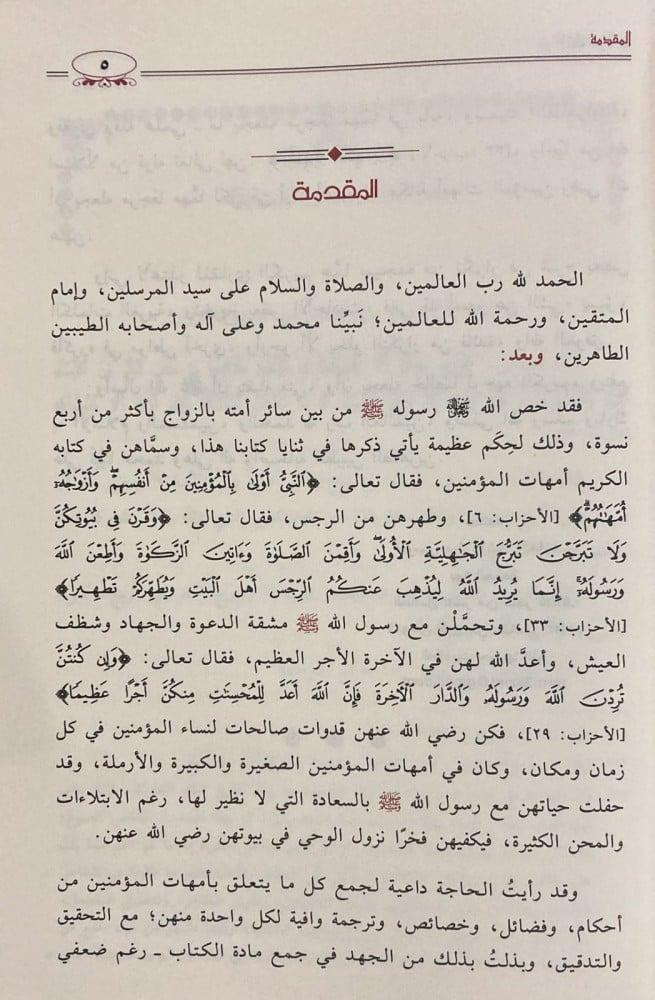 المقدمة
٥
المقدمة
الحمد لله رب العالمين، والصلاة والسلام على سيد المرسلين، وإمام
المتقين، ورحمة الله للعالمين؛ نَبيِّنا محمد وعلى آله وأصحابه الطيبين
الطاهرين، وبعد:
فقد خص الله ﷻ رسوله ﷺ من بين سائر أمته بالزواج بأكثر من أربع
نسوة، وذلك لحِكَم عظيمة يأتي ذكرها في ثنايا كتابنا هذا، وسمَّاهن في كتابه
الكريم أمهات المؤمنين، فقال تعالى: ﴿ٱلنَّبِىُّ أَوۡلَىٰ بِٱلۡمُؤۡمِنِينَ مِنۡ أَنفُسِهِمۡۖ وَأَزۡوَٰجُهُۥٓ
أُمَّهَٰتُهُمۡۗ﴾ [الأحزاب: ٦]، وطهرهن من الرجس، فقال تعالى: ﴿وَقَرۡنَ فِى بُيُوتِكُنَّ
وَلَا تَبَرَّجۡنَ تَبَرُّجَ ٱلۡجَٰهِلِيَّةِ ٱلۡأُولَىٰۖ وَأَقِمۡنَ ٱلصَّلَوٰةَ وَءَاتِينَ ٱلزَّكَوٰةَ وَأَطِعۡنَ ٱللَّهَ
وَرَسُولَهُۥٓۚ إِنَّمَا يُرِيدُ ٱللَّهُ لِيُذۡهِبَ عَنكُمُ ٱلرِّجۡسَ أَهۡلَ ٱلۡبَيۡتِ وَيُطَهِّرَكُمۡ تَطۡهِيرًا﴾
[الأحزاب: ٣٣]، وتحمَّلْن مع رسول الله ﷺ مشقة الدعوة والجهاد وشظف
العيش، وأعدَّ الله لهن في الآخرة الأجر العظيم، فقال تعالى: ﴿وَإِن كُنتُنَّ
تُرِدۡنَ ٱللَّهَ وَرَسُولَهُۥ وَٱلدَّارَ ٱلۡأٓخِرَةَ فَإِنَّ ٱللَّهَ أَعَدَّ لِلۡمُحۡسِنَٰتِ مِنكُنَّ أَجۡرًا عَظِيمًا﴾
[الأحزاب: ٢٩]، فكن رضي الله عنهن قدوات صالحات لنساء المؤمنين في كل
زمان ومكان، وكان في أمهات المؤمنين الصغيرة والكبيرة والأرملة، وقد
حفلت حياتهن مع رسول الله ﷺ بالسعادة التي لا نظير لها، رغم الابتلاءات
والمحن الكثيرة، فيكفيهن فخرًا نزول الوحي في بيوتهن رضي الله عنهن.
وقد رأيتُ الحاجة داعية لجمع كل ما يتعلق بأمهات المؤمنين من
أحكام، وفضائل، وخصائص، وترجمة وافية لكل واحدة منهن؛ مع التحقيق
والتدقيق، وبذلتُ بذلك من الجهد في جمع مادة الكتاب ـ رغم ضعفي